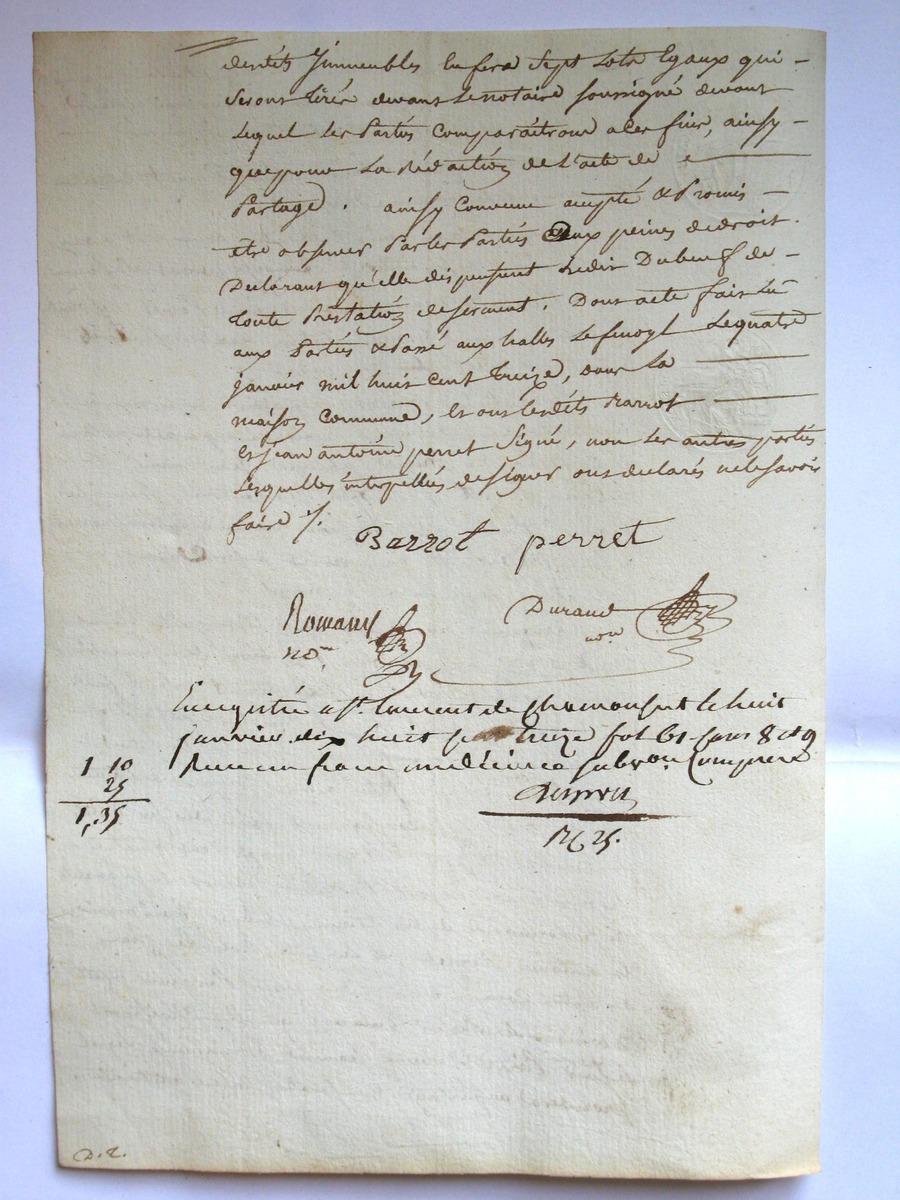 desdits Immeubles En fera Sept Lots Egaux qui -
Seront tirés devant Le notaire soussigné devant
Lequel Les Parties Comparaitront a Ces fins, ainsy -
que pour La Rédaction de L'acte de
Partage. ainsy Convenu accepté & Promis -
être observer Par les Parties aux peines de droit.
Declarant qu'elle dispensent Ledit Duboeuf de -
toute Prestation de serment. Dont acte fait Lu
aux Parties & Passé aux halles Lefenoyl Le quatre
janvier mil huit Cent treize, dans La
maison Commune, Et ont lesdits Barrot
Et jean antoine perret Signé, non Les autres parties
Lesquelles interpellées de signer ont declarés ne le savoir
faire ./.
Barrot perret
Romany Durand
nore nore
Enregistré a St. Laurent de Chamousset le huit
janvier dix huit cent treize fol 61 8 et 9
Reçu un franc dix centimes subvon. Comprise
1 10
25
1,35
1f 25.
D.C.